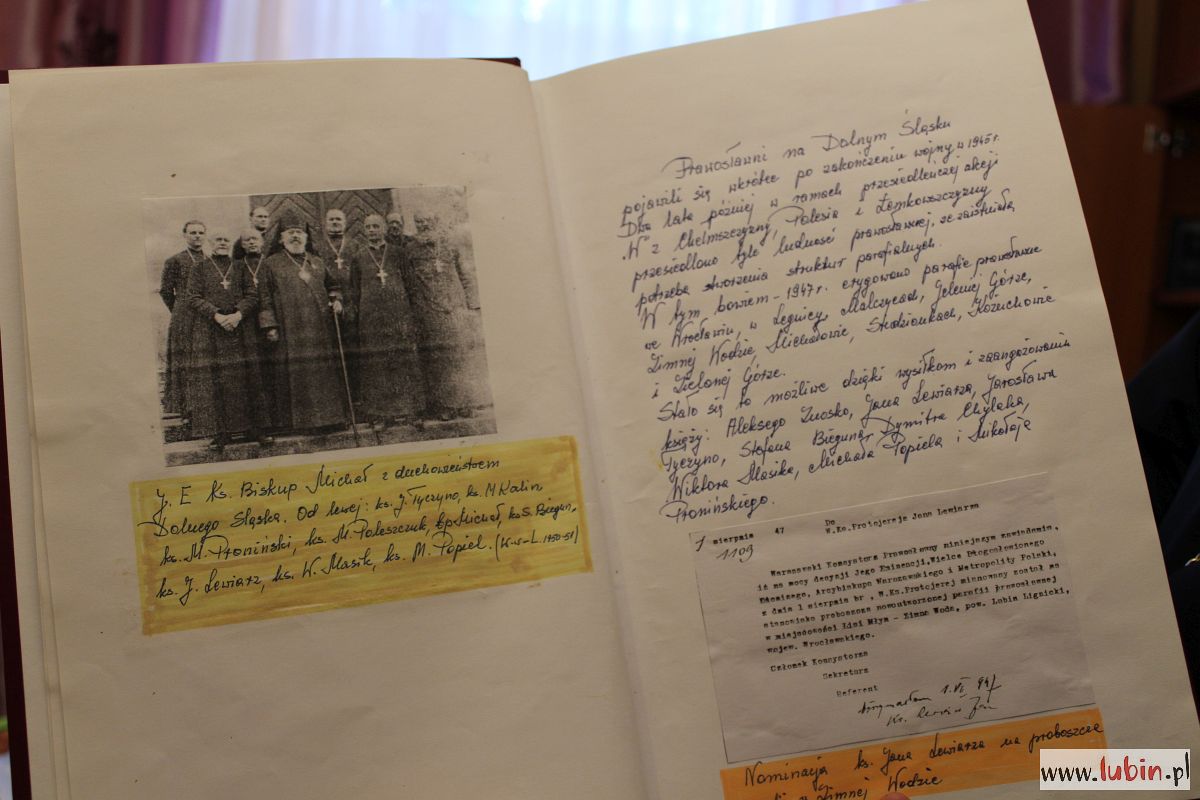 J. E Ks. Biskup Michał z duchowieństwem
Dolnego Śląska. Od lewej: ks. J. Tyczyno, ks. M Kalin
ks. M. Proniński, ks. M. Poleszczuk, bp Michał, ks S. Biegun,
ks. J. Lewiarz, ks. W. Masik, ks. M. Popiel.
Prawosławni na Dolnym Śląsku
pojawili się wkrótce po zakończeniu wojny w 1945 r.
Dwa lata później w ramach przesiedleńczej akcji
"W" z Chełmszczyzny, Polesia i Łemkowszczyzny
przesiedlono tyle ludności prawosławnej, że zaistniała
potrzeba stworzenia struktur parafialnych.
W tym bowiem - 1947 r. erygowano parafie prawosławne
we Wrocławiu, w Legnicy, Malczycach, Jeleniej Górze,
Zimnej Wodzie, Michałowie, Studzionkach, Kożuchowie
i Zielonej Górze.
Stało się to możliwe dzięki wysiłkom i zaangażowaniu
księży: Aleksego Znosko, Jana Lewiarza, Jarosława
Tyczyno, Stefana Bieguna, Dymitra Chylaka,
Wiktora Masika, Michała Popiela i Mikołaja
Pronińskiego.
sierpnia 47 Do
1109 W.Ks.Protojereja Jana Lewiarza
Warszawski Konsystorz Prawosławny niniejszym zawiadamia,
iż na mocy decyzji Jego Eminencji, Wielce Błogosławionego
Arcybiskupa Warszawskiego i Metropolity Polski,
z dnia 1 sierpnia br , W.Ks.Protojerej mianowany został na
stanowisko proboszcza nowoutworzonej parafii prawosławnej
w miejscowości Lisi Młyn - Zimna Woda, pow. Lubin Lignicki,
wojew. Wrocławskiego.
Członek Konsystorza
Sekretarz
Referent
Otrzymałem
Ks. Lewiarz Jan
Nominacja ks. Jana Lewiarza na proboszcza
w Zimnej Wodzie
www.lubin.pl